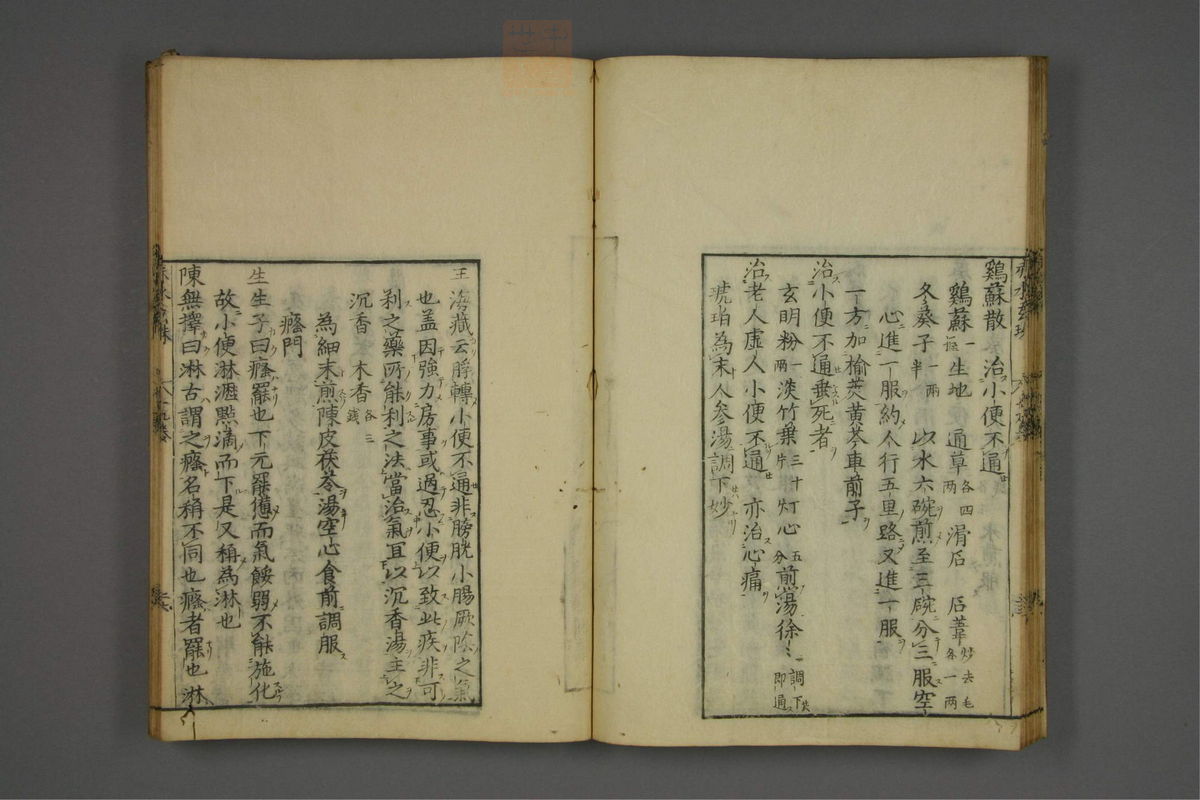 鷄蘇散 治小便不通
鷄蘇一握 生地 通草各四兩 滑石 石葦炒去毛各一兩
冬葵子一兩半 以水六碗煎至三碗分三服空
心進一服約人行五里路又進一服
一方加榆莢黄芩車前子
治小便不通垂死者
玄明粉一兩 淡竹葉三十片 灯心五分 煎湯徐〻調下即通
治老人虚人小便不通 亦治心痛
琥珀為末人參湯調下妙
王海藏云脬轉小便不通非膀胱小腸厥陰之氣
也盖因強力房事或過忍小便以致此疾非可
利之藥所能利之法當治氣宜以沉香湯主之
沉香 木香各三錢
為細末煎陳皮茯苓湯空心食前調服
癃門
生生子曰癃罷也下元罷憊而氣餒弱不能施化
故小便淋瀝㸃滴而下是又稱為淋也
陳無擇曰淋古謂之癃名稱不同也癃者罷也淋